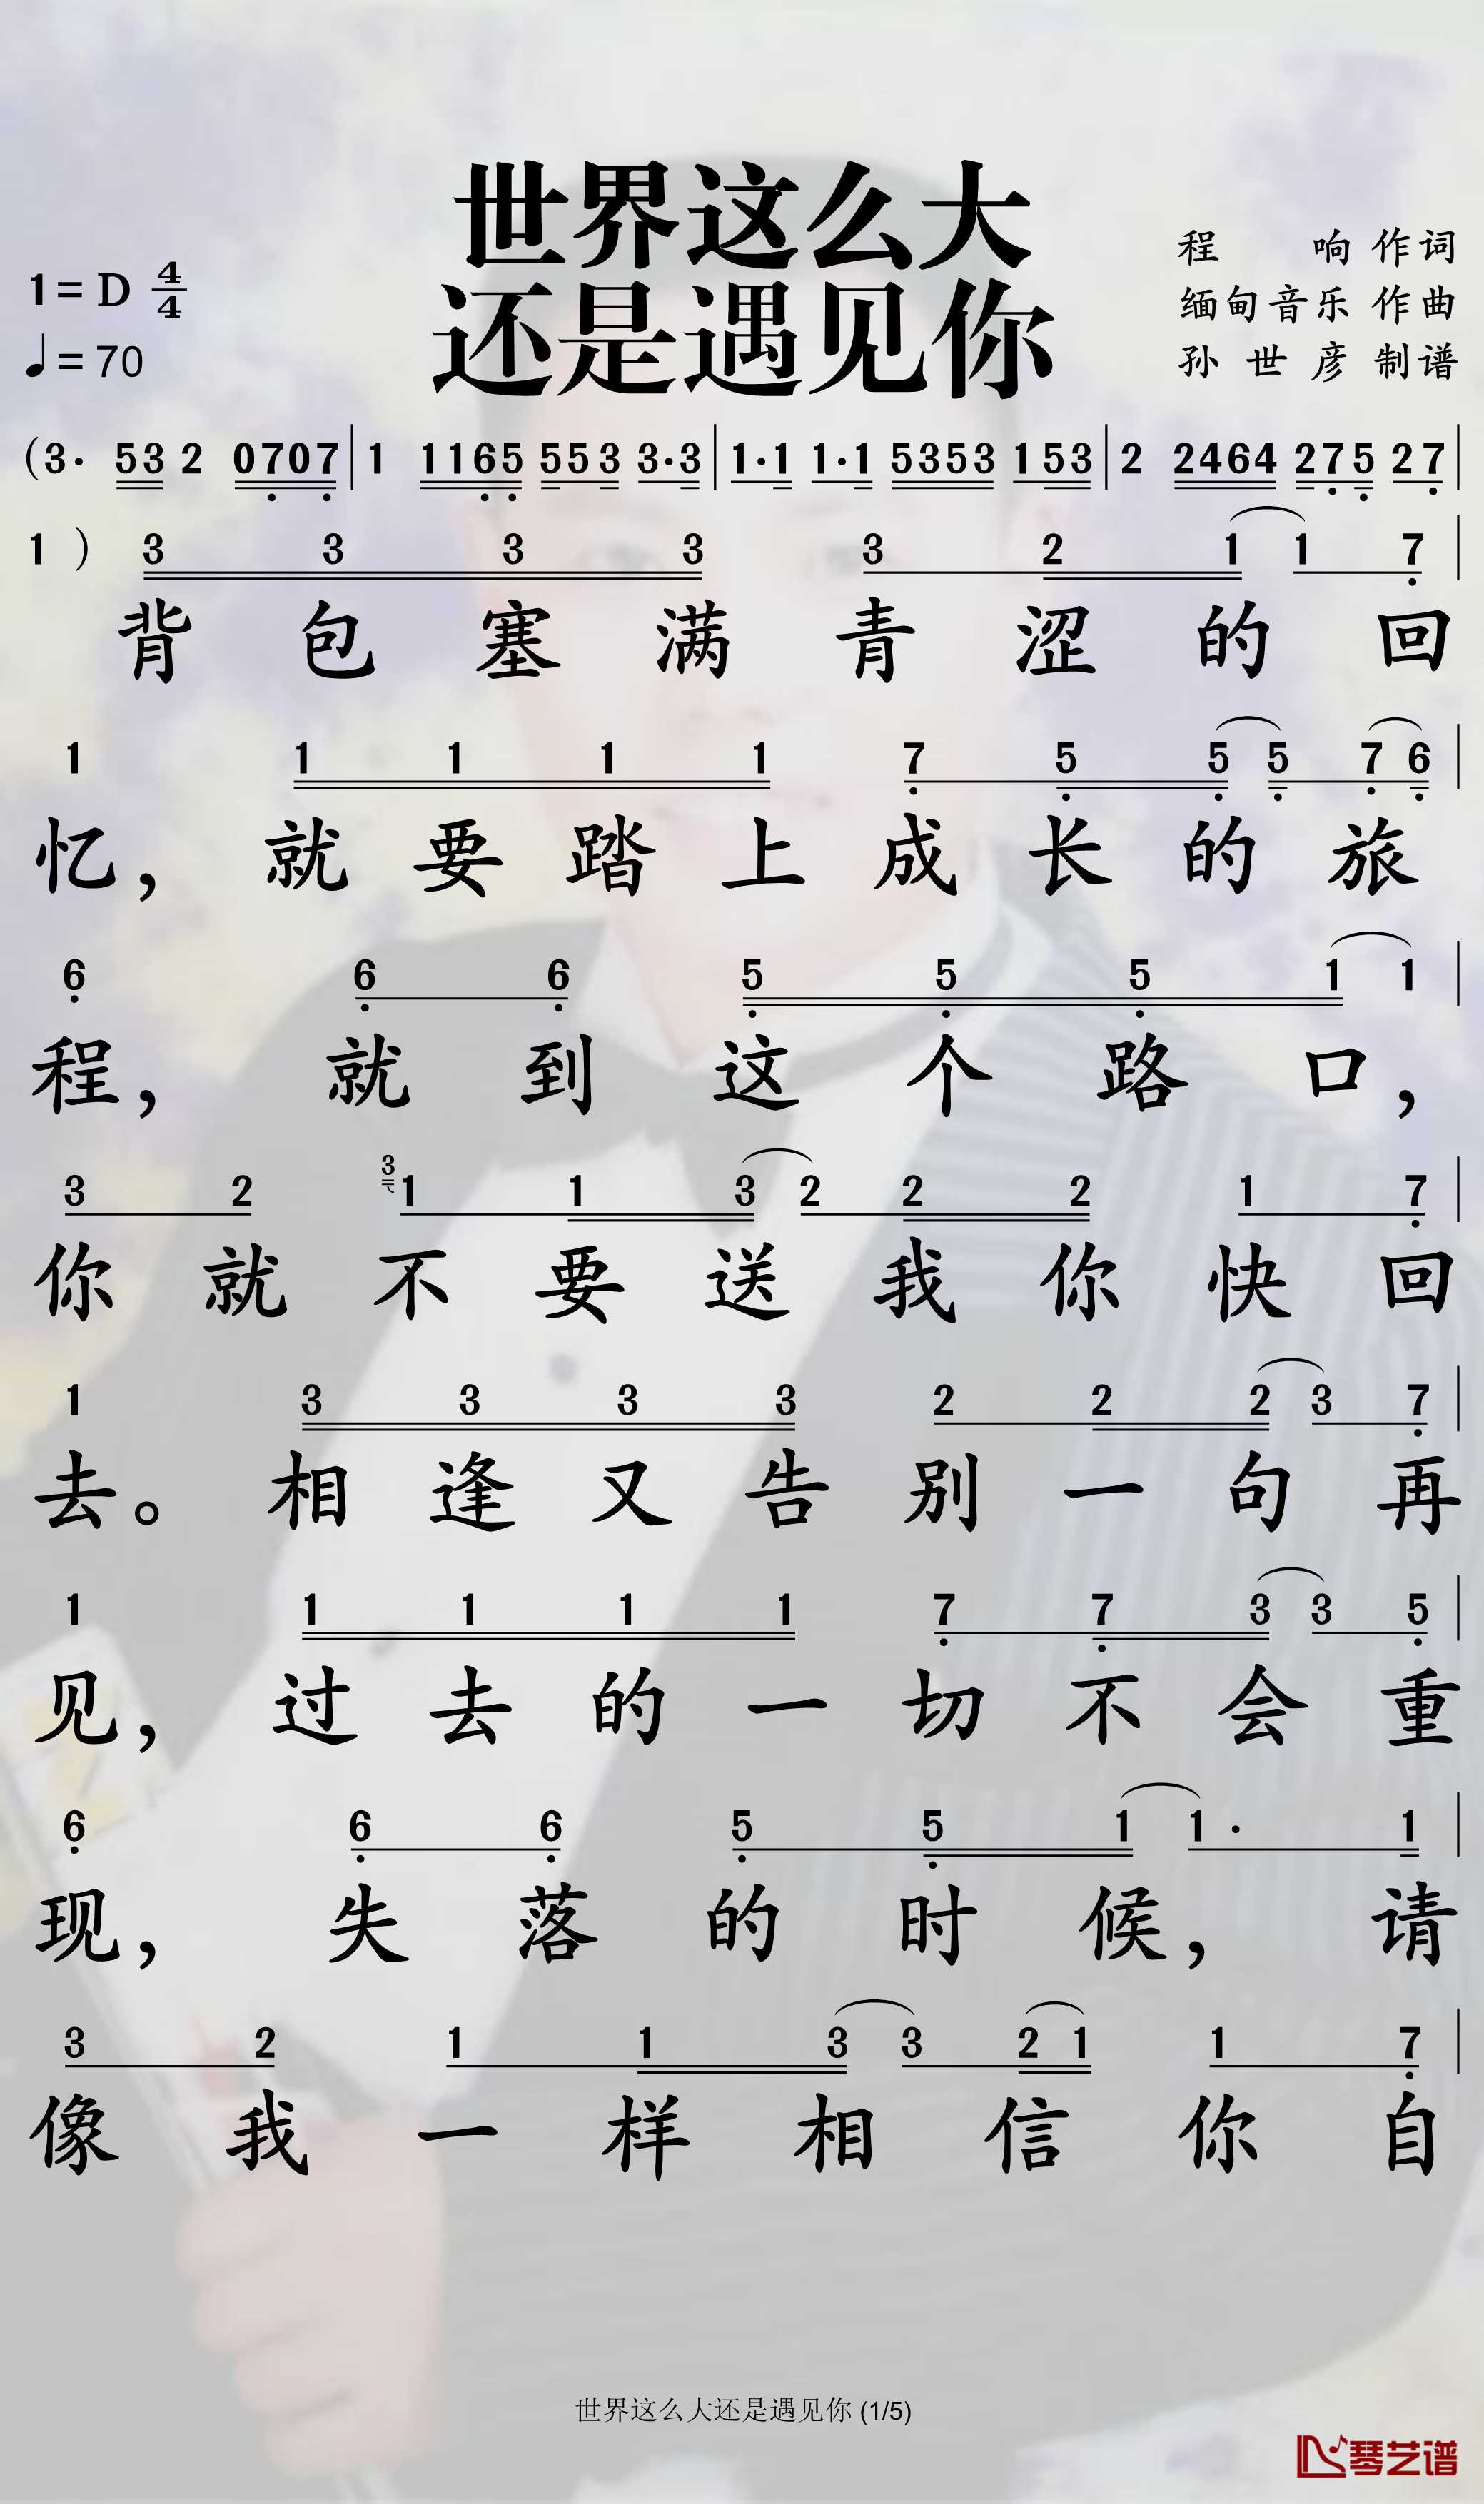 世界这么大
还是遇见你
1=D 4/4
♩=70
程 响 作词
缅甸音乐 作曲
孙世彦 制谱
(3· 53 2 0707 | 1 1165 553 3·3 | 1·1 1·1 5353 153 | 2 2464 275 27 |
1 ) 3 3 3 3 3 2 1 1 7 |
背 包 塞 满 青 涩 的 回
1 1 1 1 1 7 5 5 5 7 6 |
忆， 就 要 踏 上 成 长 的 旅
6 6 6 5 5 5 1 1 |
程， 就 到 这 个 路 口，
3 2 3 1 1 3 2 2 2 1 7 |
你 就 不 要 送 我 你 快 回
1 3 3 3 3 2 2 2 3 7 |
去。 相 逢 又 告 别 一 句 再
1 1 1 1 1 7 7 3 3 5 |
见， 过 去 的 一 切 不 会 重
6 6 6 5 5 1 1· 1 |
现， 失 落 的 时 候， 请
3 2 1 1 3 3 2 1 1 7 |
像 我 一 样 相 信 你 自
世界这么大还是遇见你 (1/5)
琴艺谱